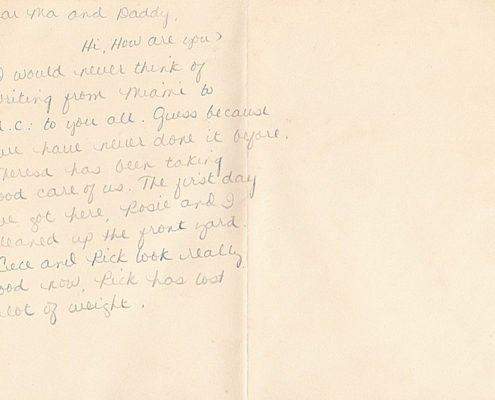 ear Ma and Daddy,
Hi, How are you?
I would never think of
writing from Miami to
.C.: to you all. Guess because
we have never done it before.
Theresa has been taking
ood care of us. The first day
we got here, Rosie and I
leaned up the front yard.
Cece and Rick look really
ood now. Rick has lost
alot of weight.